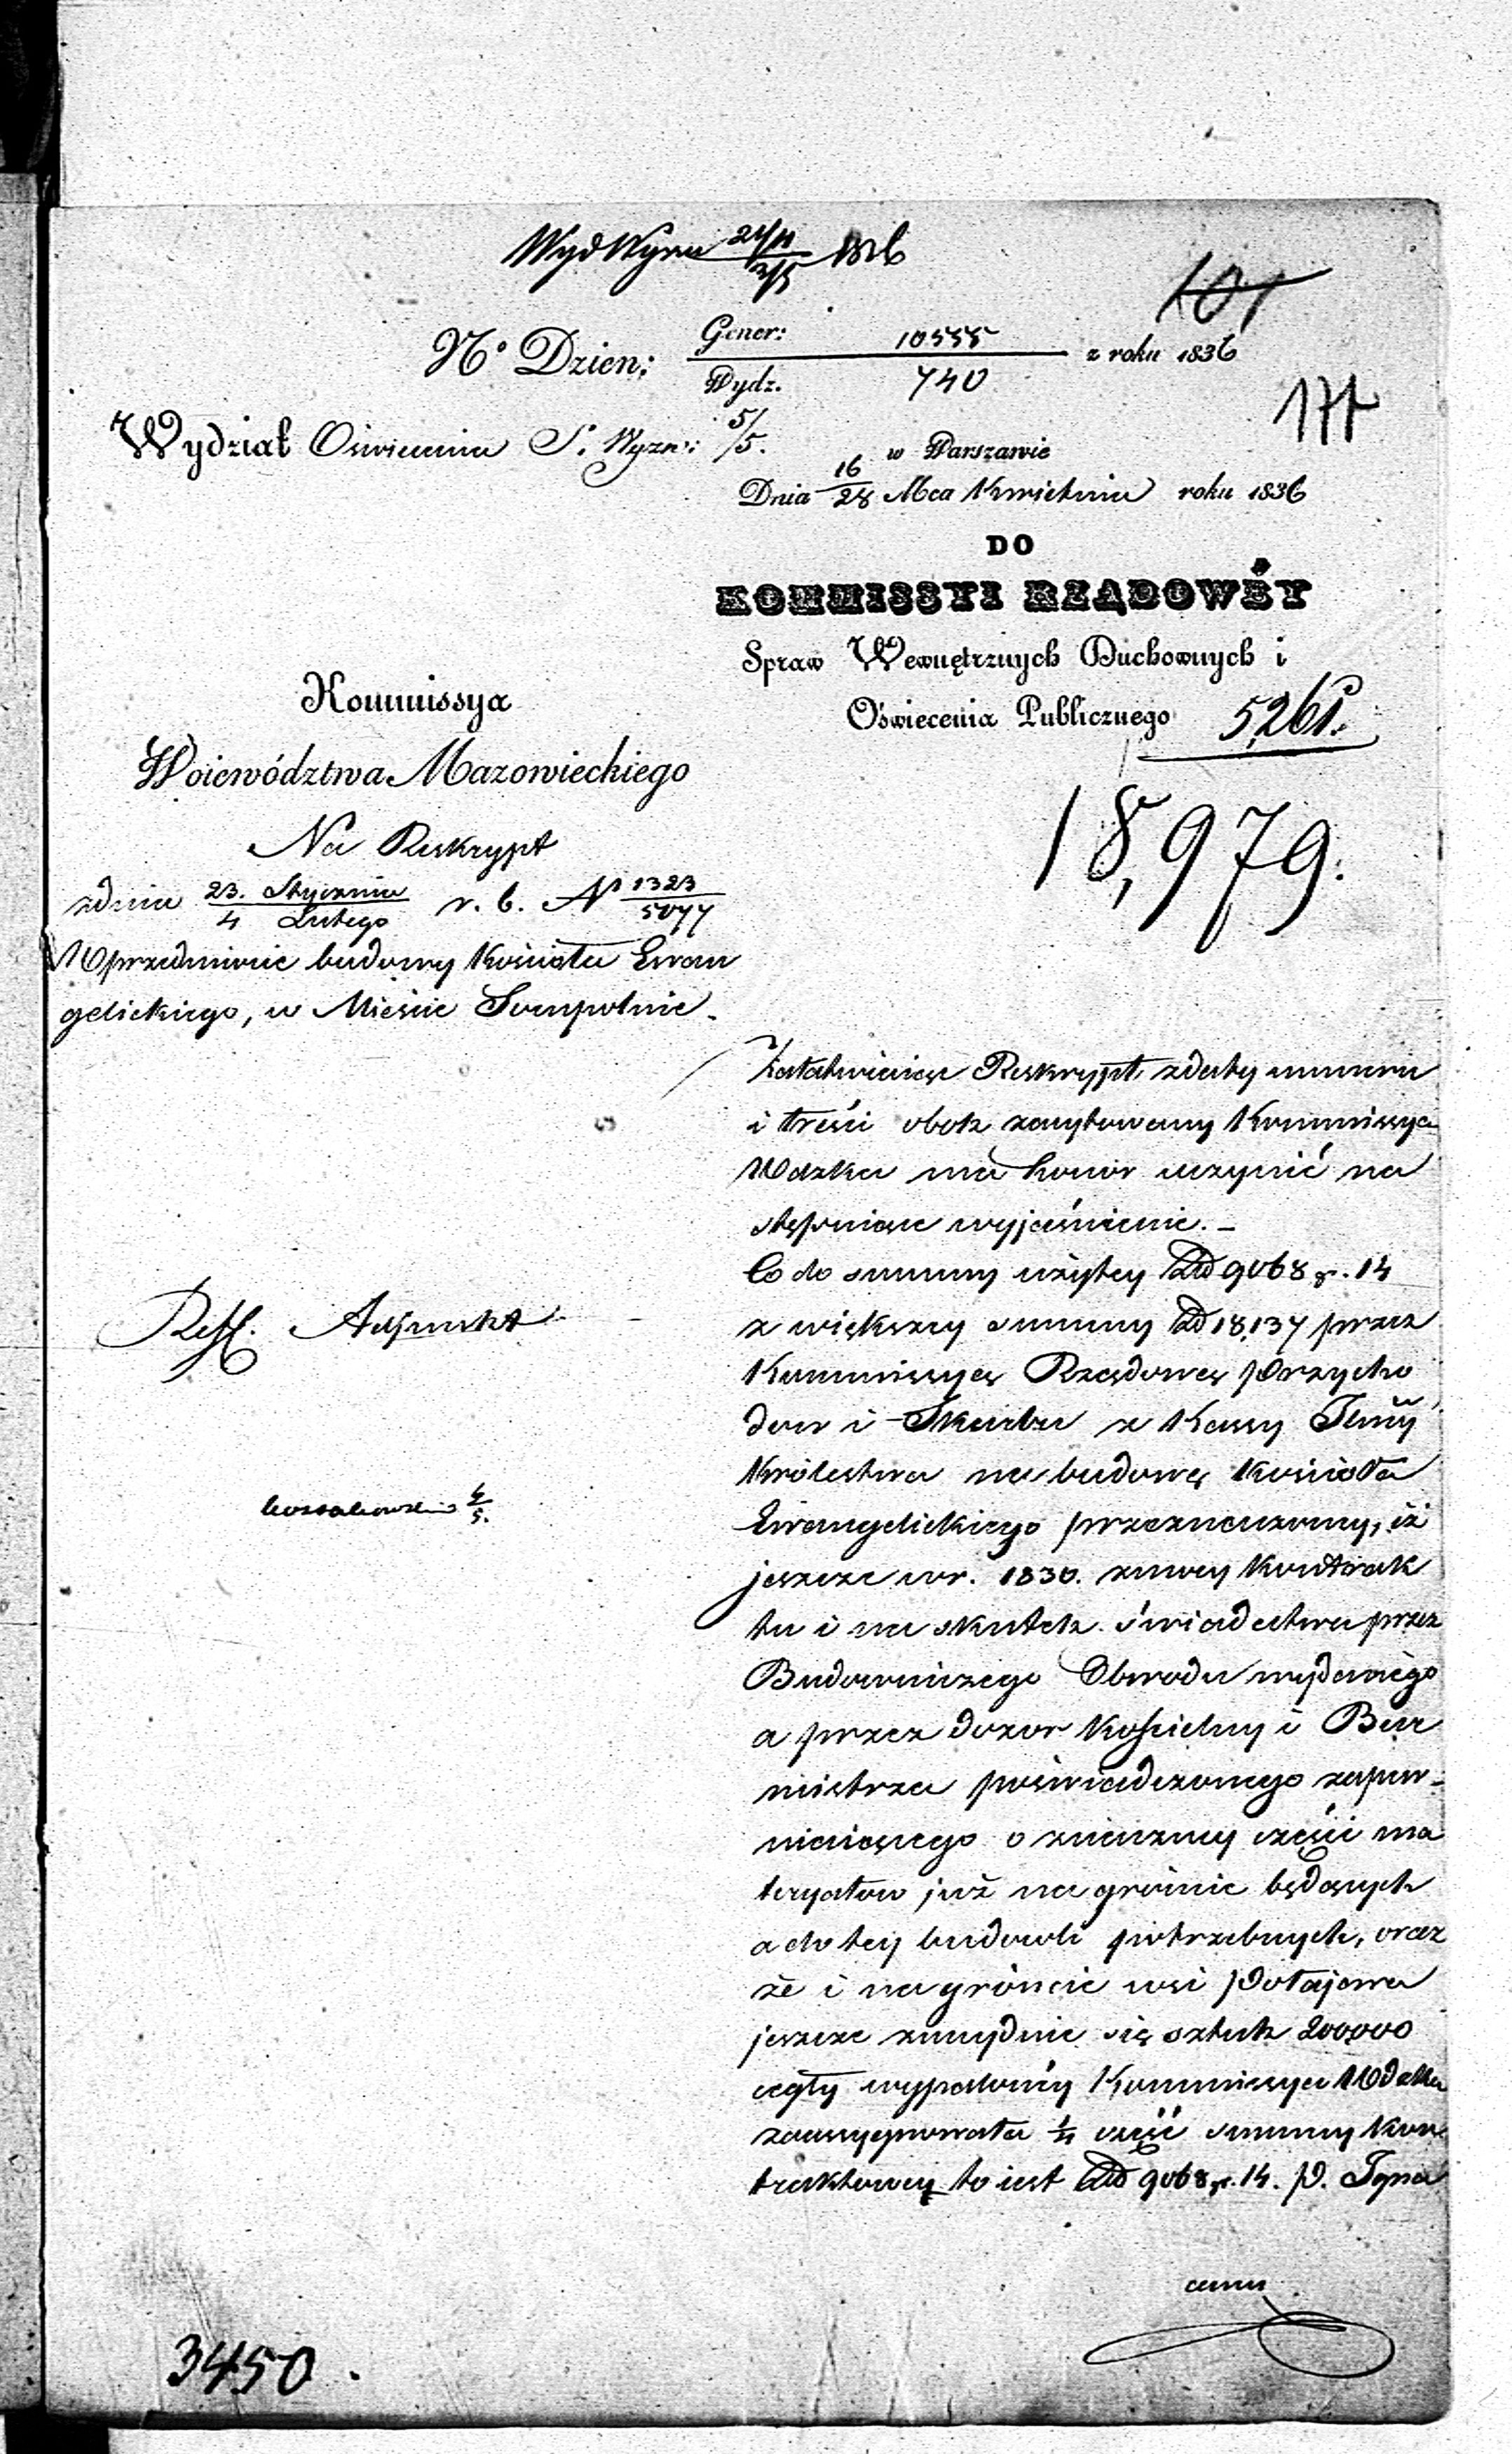 Wyd Wyzn 24/4 3/5 1836
101
N° Dzien: Gener: 10555 z roku 1836
Wydz. 740
177
Wydział Oświecenia S. Wyzn: 5/5.
w Warszawie
Dnia 16/28 Mca Kwietnia roku 1836
DO
KOMMISSYI RZĄDOWÉY
Spraw Wewnętrznych Duchownych i
Oświecenia Publicznego 5,261.
18,979.
Kommissya
Woiewództwa Mazowieckiego
Na Reskrypt
zdnia 23. Stycznia / 4 Lutego r. b. N 1323/5077
W przedmiocie budowy Kościoła Ewan
gelickiego, w Mieście Sompolnie.
Załatwiaiąc Reskrypt zdaty numeru
i treści obok zacytowany Kommissya
Wdzka ma honor uczynić na
stępuiące wyjaśnienie. –
Co do summy użytey Zł 9068 gr. 14
z większey summy Zł 18,137 przez
Kommissyą Rządową Przycho
dow i Skarbu z Kassy Głney
Królestwa na budowę Kościoła
Ewangelickiego przeznaczoney, iż
jeszcze w r. 1830. zmocy Kontrak
tu i na skutek świadectwa przez
Budowniczego Obwodu wydanego
a przez dozor Kościelny i Bur
mistrza poświadczonego zapew-
niaiącego o znaczney części ma
teryałow już na gróncie będących
a do tey budowli potrzebnych, oraz
że i na gróncie wsi Potajowa
jeszcze znayduie się sztuk 200,000
cegły wypaloney Kommissya Wdzka
zaassygnowała ½ część summy Kon
traktowey to iest Zł 9068 gr. 14. P. Igna
cemu
Reff. Adjunkt
Kossakowski 4/5.
3450.